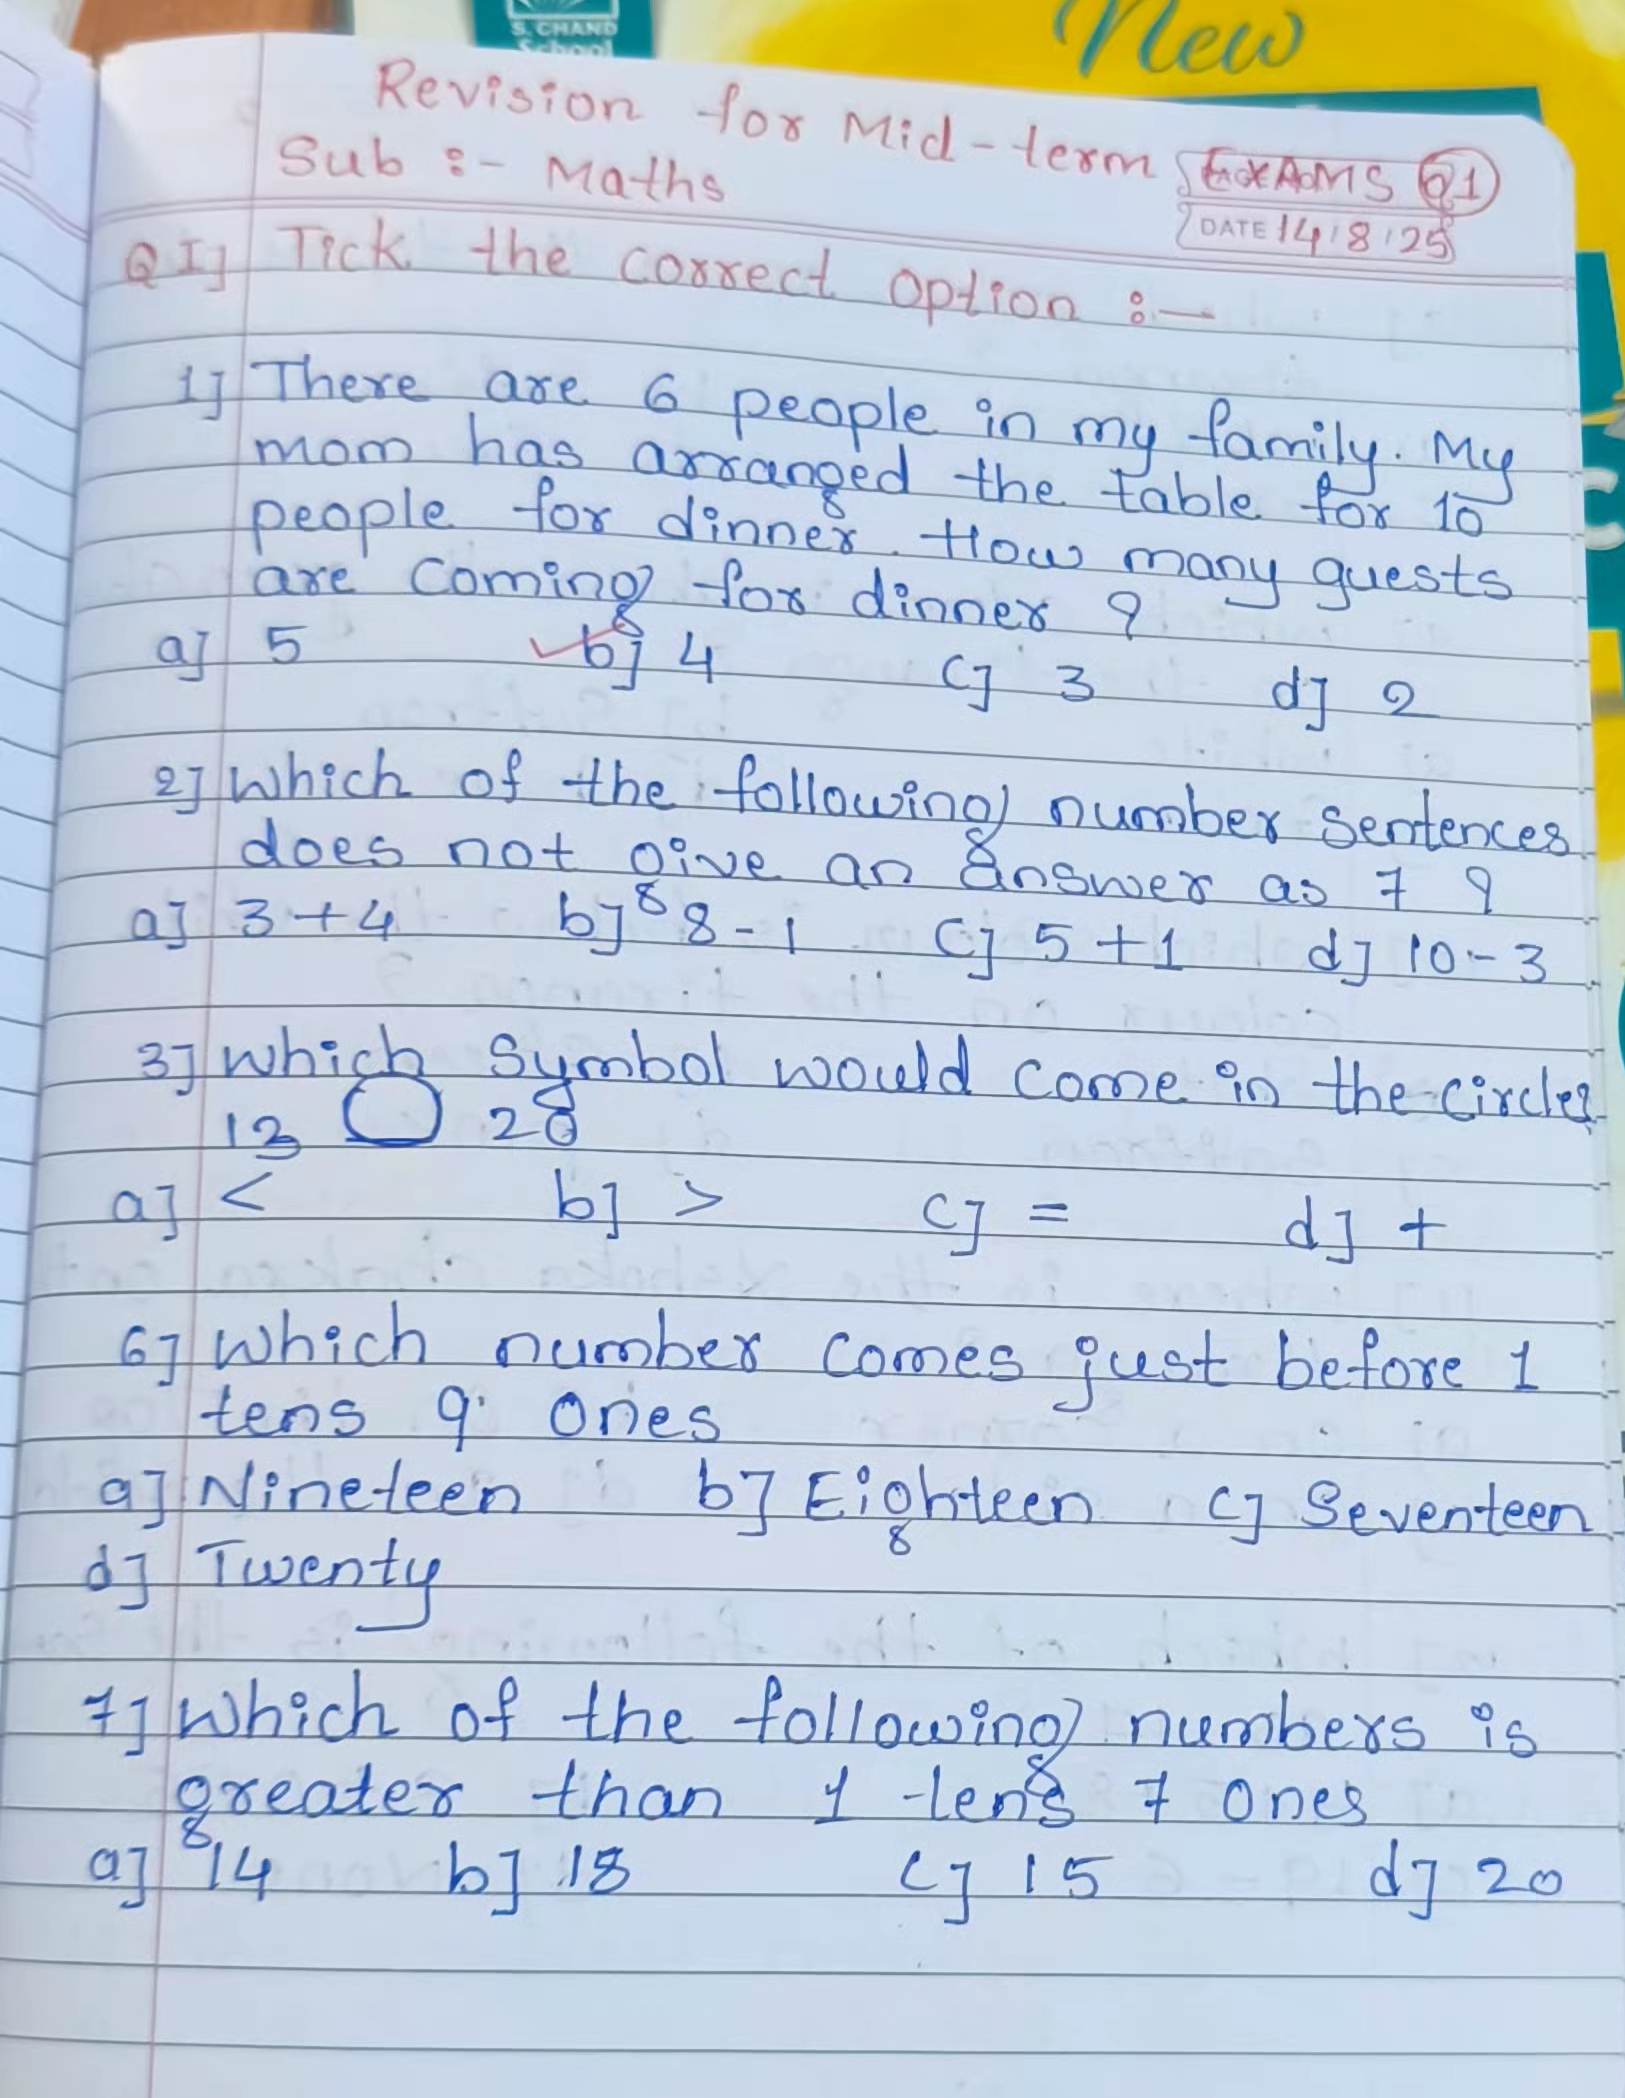 S. CHAND
School
New
Revision for Mid-term EXAMS Q1
Sub :- Maths
DATE 14/8/25
Q I] Tick the correct option :-
1] There are 6 people in my family. My
mom has arranged the table for 10
people for dinner. How many guests
are coming for dinner ?
a] 5 b] 4 c] 3 d] 2
2] Which of the following number sentences
does not give an answer as 7 ?
a] 3+4 b] 8-1 c] 5+1 d] 10-3
3] Which symbol would come in the circle?
13 ◯ 28
a] < b] > c] = d] +
6] Which number comes just before 1
tens 9 ones
a] Nineteen b] Eighteen c] Seventeen
d] Twenty
7] Which of the following numbers is
greater than 1 tens 7 ones
a] 14 b] 18 c] 15 d] 20